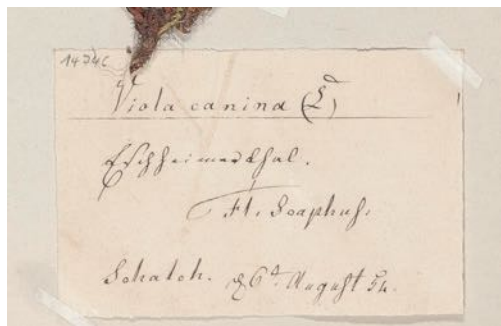 Viola canina (L)
Eschheimerthal.
Fl. Scaphus.
Schalch. d 6t. August 54.